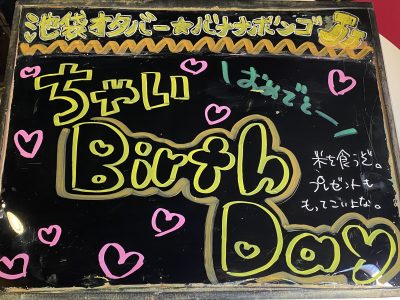 池袋オタバー★バナナボンゴ
ちゃい
おめでとー
Birth
Day
米を食うぞ。
プレゼントも
もってこいよな。